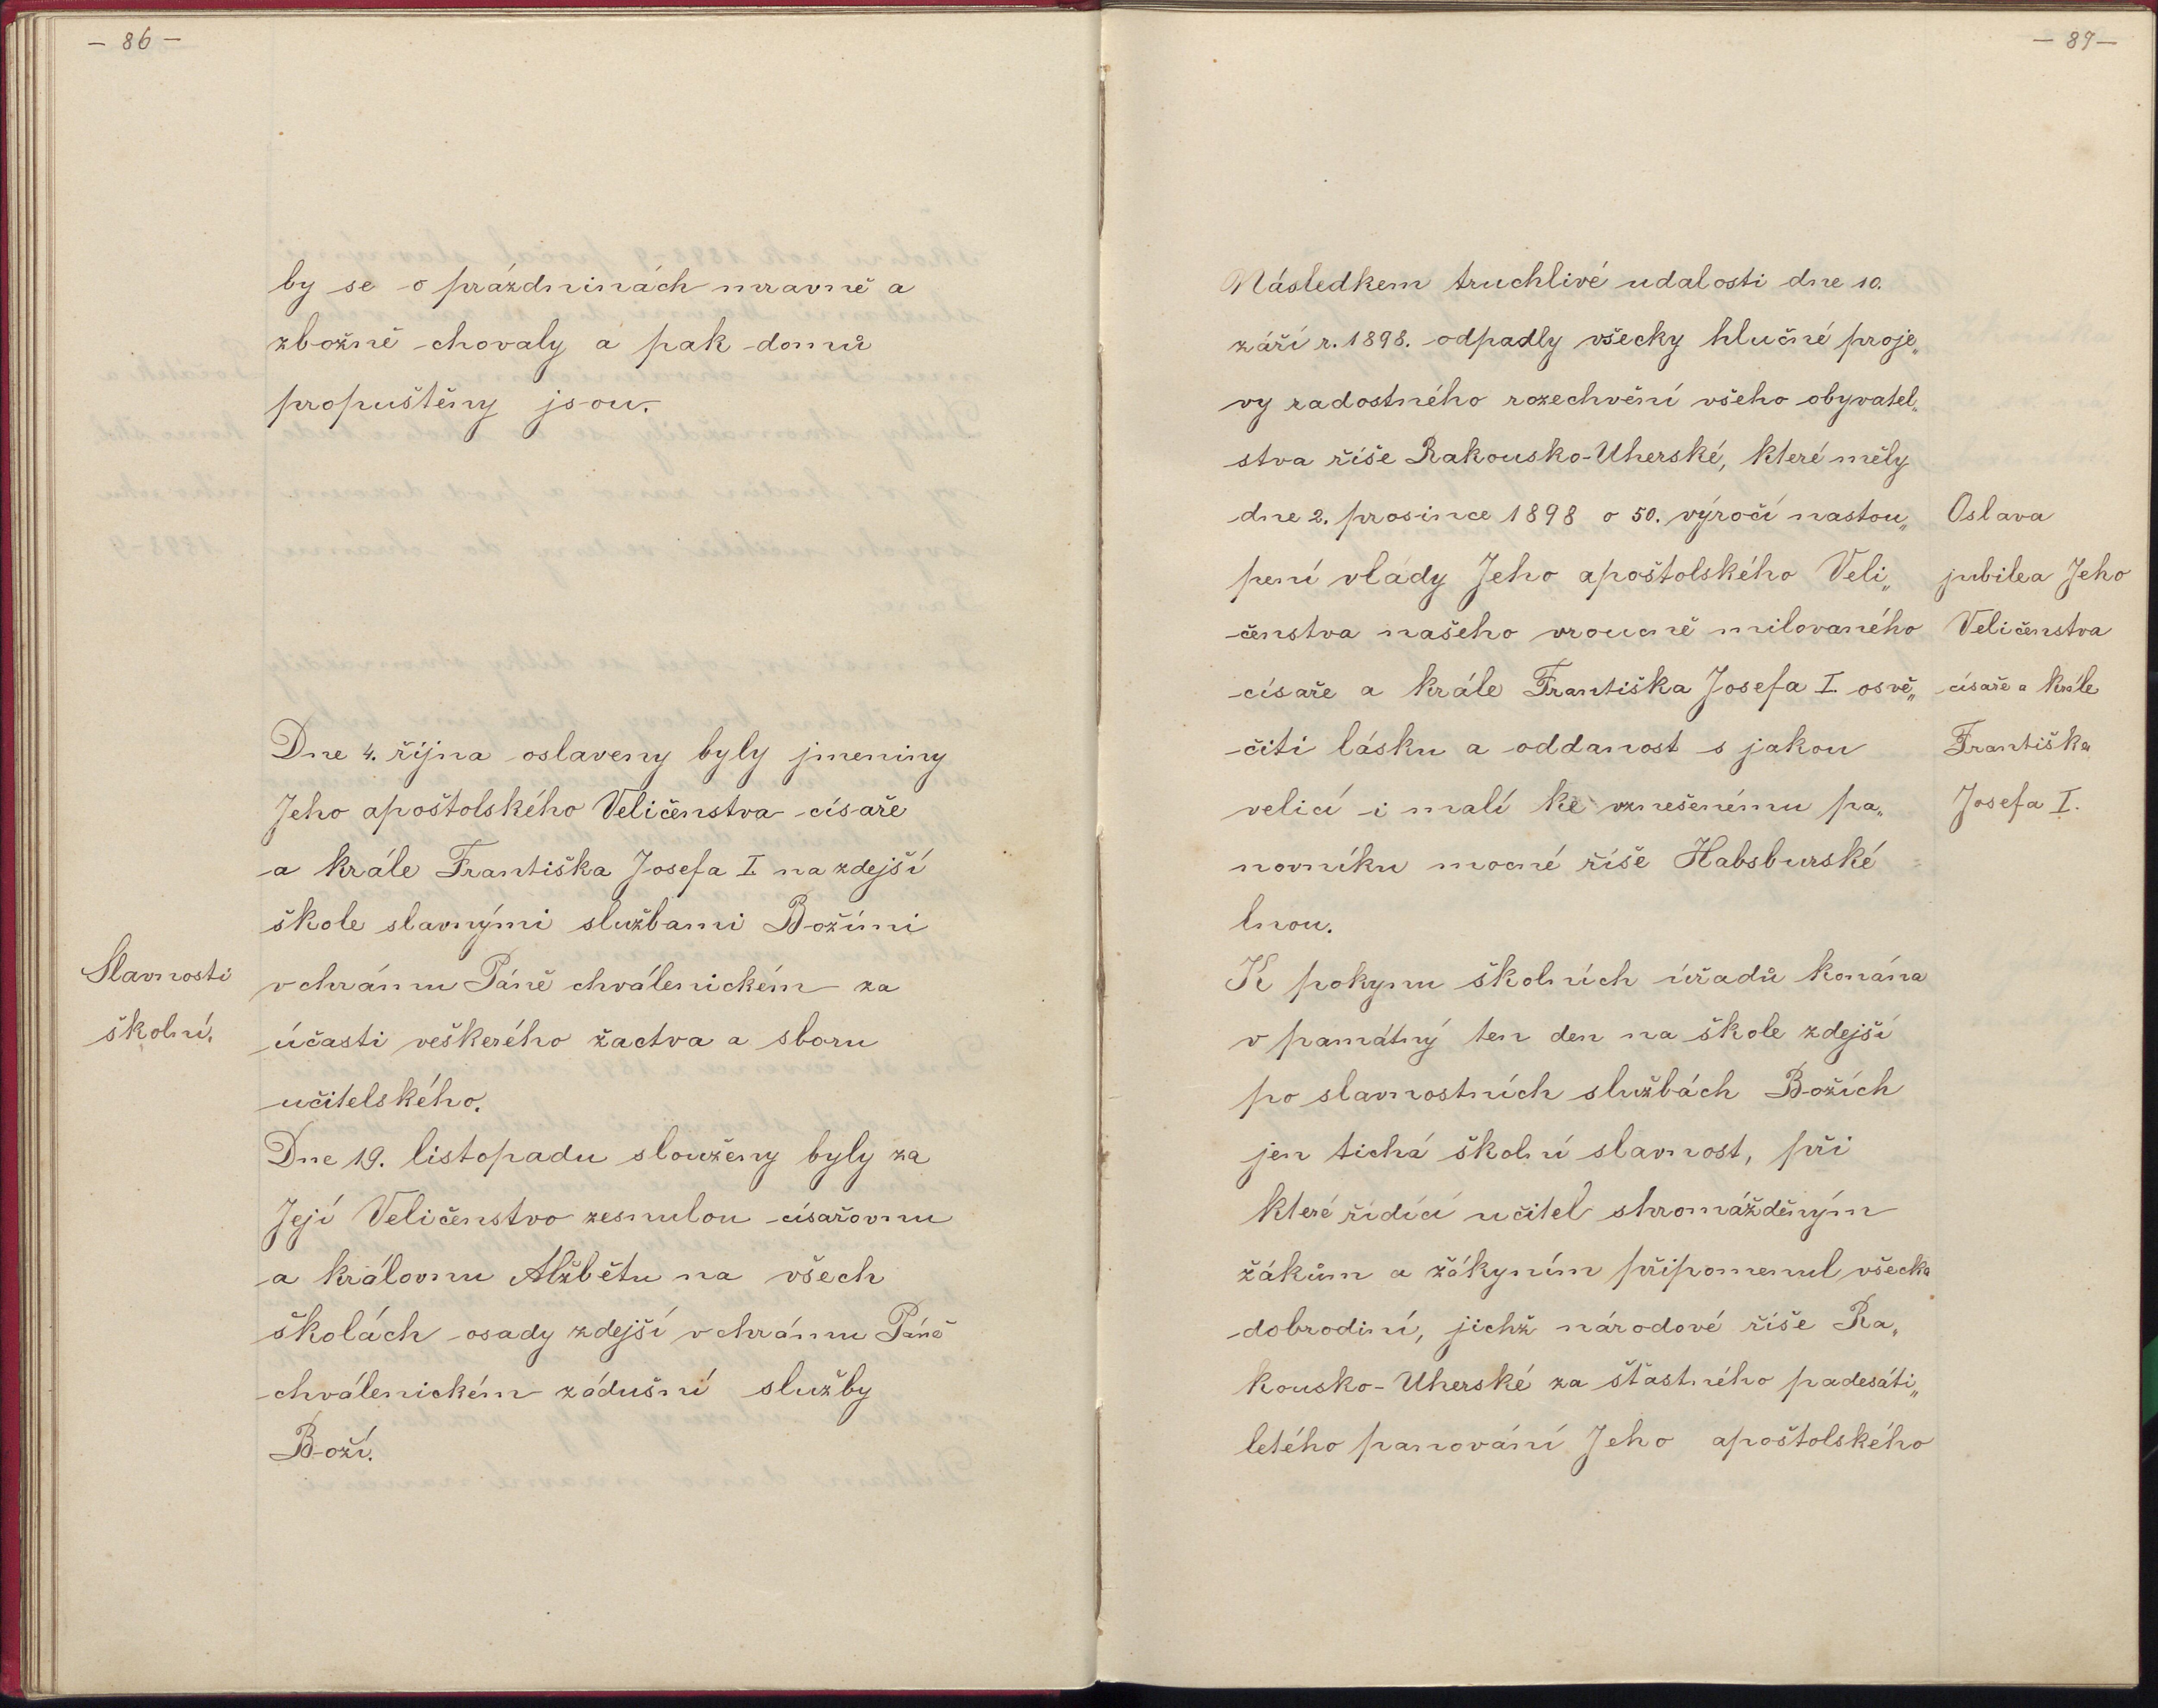 - 86 -
by se o prázdninách mravně a
zbožně chovaly a pak domů
propuštěny jsou.
Dne 4. října oslaveny byly jmeniny
Jeho apoštolského Veličenstva císaře
a krále Františka Josefa I. na zdejší
škole slavnými službami Božími
Slavnosti
školní.
v chrámu Páně chválenickém za
účasti veškerého žactva a sboru
učitelského.
Dne 19. listopadu slouženy byly za
Její Veličenstvo zesnulou císařovnu
a královnu Alžbětu na všech
školách osady zdejší v chrámu Páně
chválenickém zádušní služby
Boží.
- 87 -
Následkem truchlivé udalosti dne 10.
září r. 1898. odpadly všecky hlučné proje„
vy radostného rozechvění všeho obyvatel„
stva říše Rakousko-Uherské, které měly
dne 2. prosince 1898 o 50. výročí nastou„
pení vlády Jeho apoštolského Veli„
čenstva našeho vroucně milovaného
císaře a krále Františka Josefa I. osvě„
čiti lásku a oddanost s jakou
velicí i malí ke vznešenému pa„
novníku mocné říše Habsburské
lnou.
Oslava
jubilea Jeho
Veličenstva
císaře a krále
Františka
Josefa I.
K pokynu školních úřadů konána
v památný ten den na škole zdejší
po slavnostních službách Božích
jen tichá školní slavnost, při
které řídící učitel shromážděným
žákům a žákyním připomenul všecka
dobrodiní, jichž národové říše Ra„
kousko-Uherské za šťastného padesáti„
letého panování Jeho apoštolského